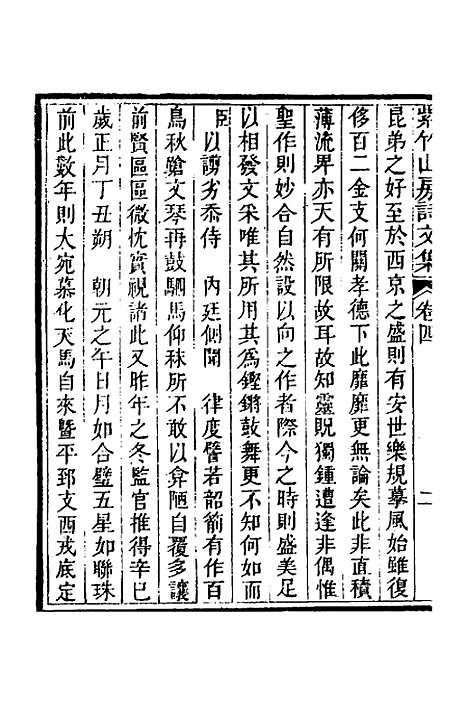 紫竹山房詩文集 卷四 二
昆弟之好至於西京之盛則有安世樂規摹風始雖復
侈百二金支何關孝德下此靡靡更無論矣此非直積
薄流界亦天有所限故耳故知靈貺獨鍾遭逢非偶惟
聖作則妙合自然設以向之作者際今之時則盛美足
以相發文采唯其所用其為鏗鏘鼓舞更不知何如而
臣以譾劣忝侍 內廷側聞 律度譬若韶箾有作百
鳥秋鶬文琴再鼓駟馬仰秣所不敢以弇陋自覆多讓
前賢區區微忱實視諸此又昨年之冬監官推得辛巳
歲正月丁丑朔 朝元之午日月如合璧五星如聯珠
前此數年則大宛慕化天馬自來暨平郅支西戎底定